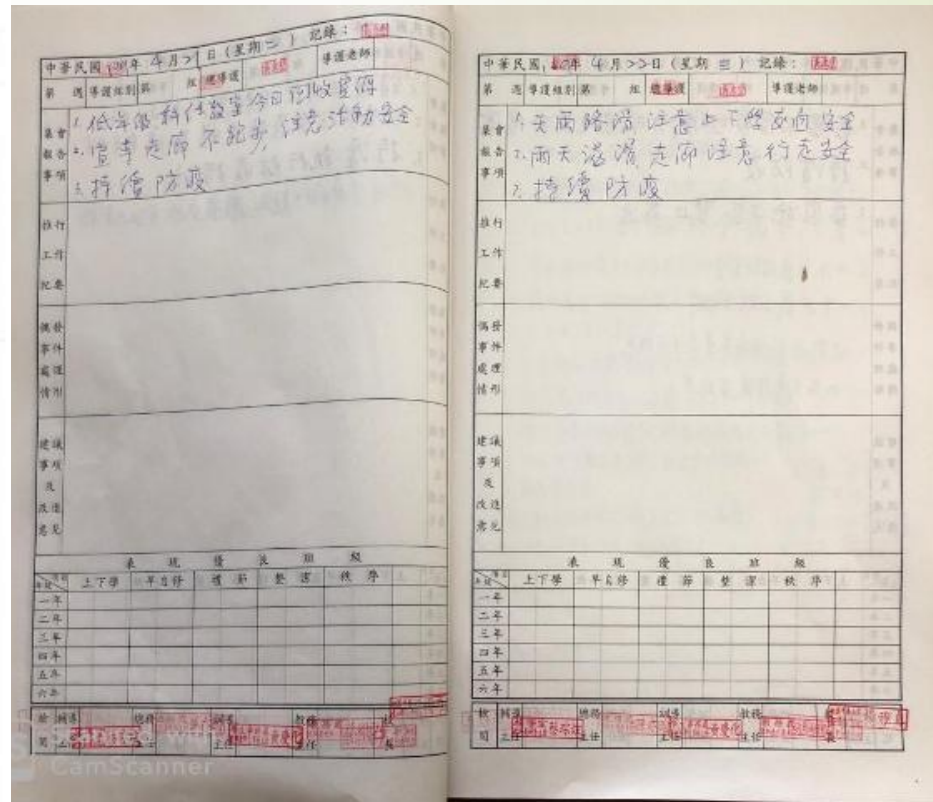 中華民國 109年 4月21日(星期二) 記錄:
第 週 導護組別 第 組 總導護 導護老師
集會報告事項
1. 低年級科任教室今日回收
2. 宣導走廊不跑步,注意活動安全
3. 持續防疫
推行工作紀要
偶發事件處理情形
建議事項及改進意見
表現優良班級
年級 項目 上下學 早自修 禮節 整潔 秩序
一年
二年
三年
四年
五年
六年
檢閱 輔導主任 總務主任 訓導主任 教務主任 校長
Scanned with
CamScanner
中華民國 109年 4月22日(星期三) 記錄:
第 週 導護組別 第 組 總導護 導護老師
集會報告事項
1. 天雨路滑注意上下學交通安全
2. 雨天濕滑走廊注意行走安全
3. 持續防疫
推行工作紀要
偶發事件處理情形
建議事項及改進意見
表現優良班級
年級 項目 上下學 早自修 禮節 整潔 秩序
一年
二年
三年
四年
五年
六年
檢閱 輔導主任 總務主任 訓導主任 教務主任 校長